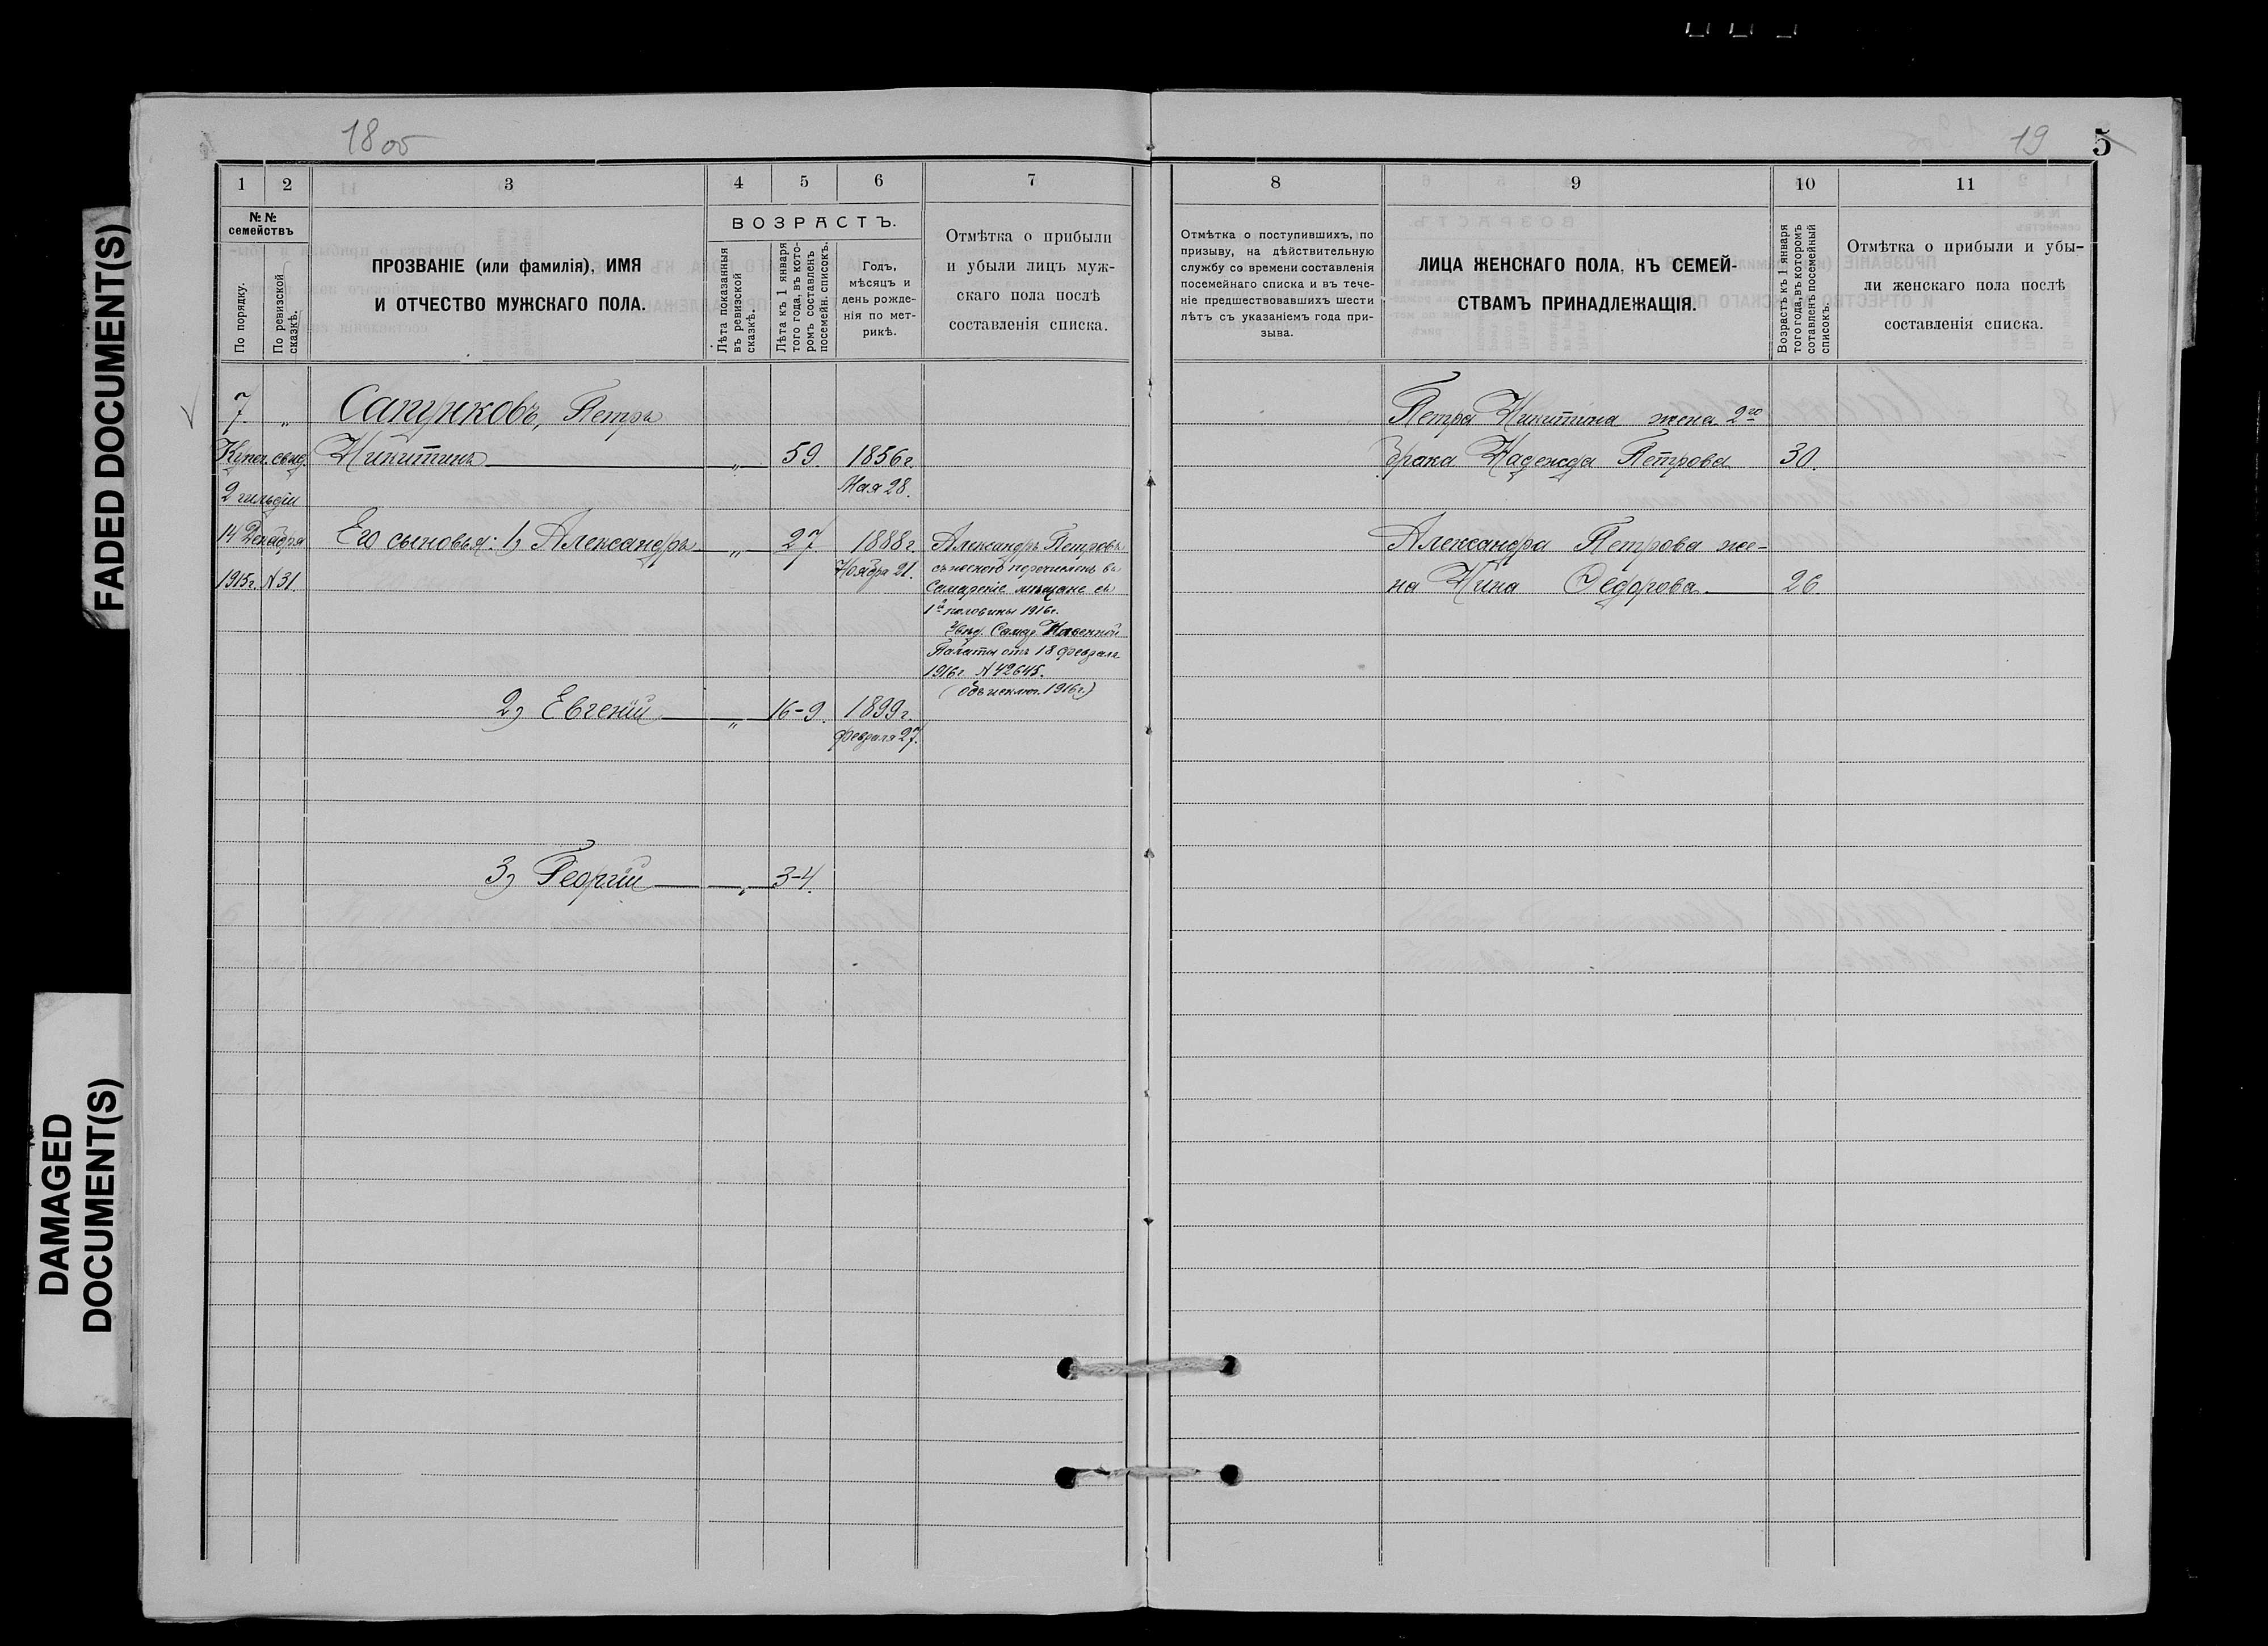 18 об
19
5
1
2
3
4
5
6
7
№ №
семействъ
По порядку.
По ревизской
сказкѣ.
ПРОЗВАНІЕ (или фамилія), ИМЯ
И ОТЧЕСТВО МУЖСКАГО ПОЛА.
ВОЗРАСТЪ.
Лѣта показанныя
въ ревизской
сказкѣ.
Лѣта къ 1 января
того года, въ кото-
ромъ составленъ
посемейн. списокъ.
Годъ,
мѣсяцъ и
день рожде-
нія по мет-
рикѣ.
Отмѣтка о прибыли
и убыли лицъ муж-
скаго пола послѣ
составленія списка.
7. „
Купеч. свид.
2 гильдіи
14 Декабря
1915г. № 31.
Сапунковъ, Петръ
Никитинъ „ 59. 1856г.
Мая 28.
Его сыновья: 1) Александръ „ 27 1888г.
Ноября 21.
Александръ Петровъ
съ женою перечисленъ въ
Самарскіе мѣщане съ
1й половины 1916г.
Увѣд. Самар. Казенной
Палаты отъ 18 февраля
1916г. № 42645.
(Объ исключ. 1916г.)
2) Евгеній „ 16-9. 1899г.
Февраля 27.
3) Георгій „ 3-4.
8
9
10
11
Отмѣтка о поступившихъ, по
призыву, на дѣйствительную
службу со времени составленія
посемейнаго списка и въ тече-
ніе предшествовавшихъ шести
лѣтъ съ указаніемъ года при-
зыва.
ЛИЦА ЖЕНСКАГО ПОЛА, КЪ СЕМЕЙ-
СТВАМЪ ПРИНАДЛЕЖАЩІЯ.
Возрастъ къ 1 января
того года, въ которомъ
составленъ посемейный
списокъ.
Отмѣтка о прибыли и убы-
ли женскаго пола послѣ
составленія списка.
Петра Никитина жена 2го
брака Надежда Петрова 30.
Александра Петрова же-
на Нина Ѳедорова 26.
FADED DOCUMENT(S)
DAMAGED
DOCUMENT(S)